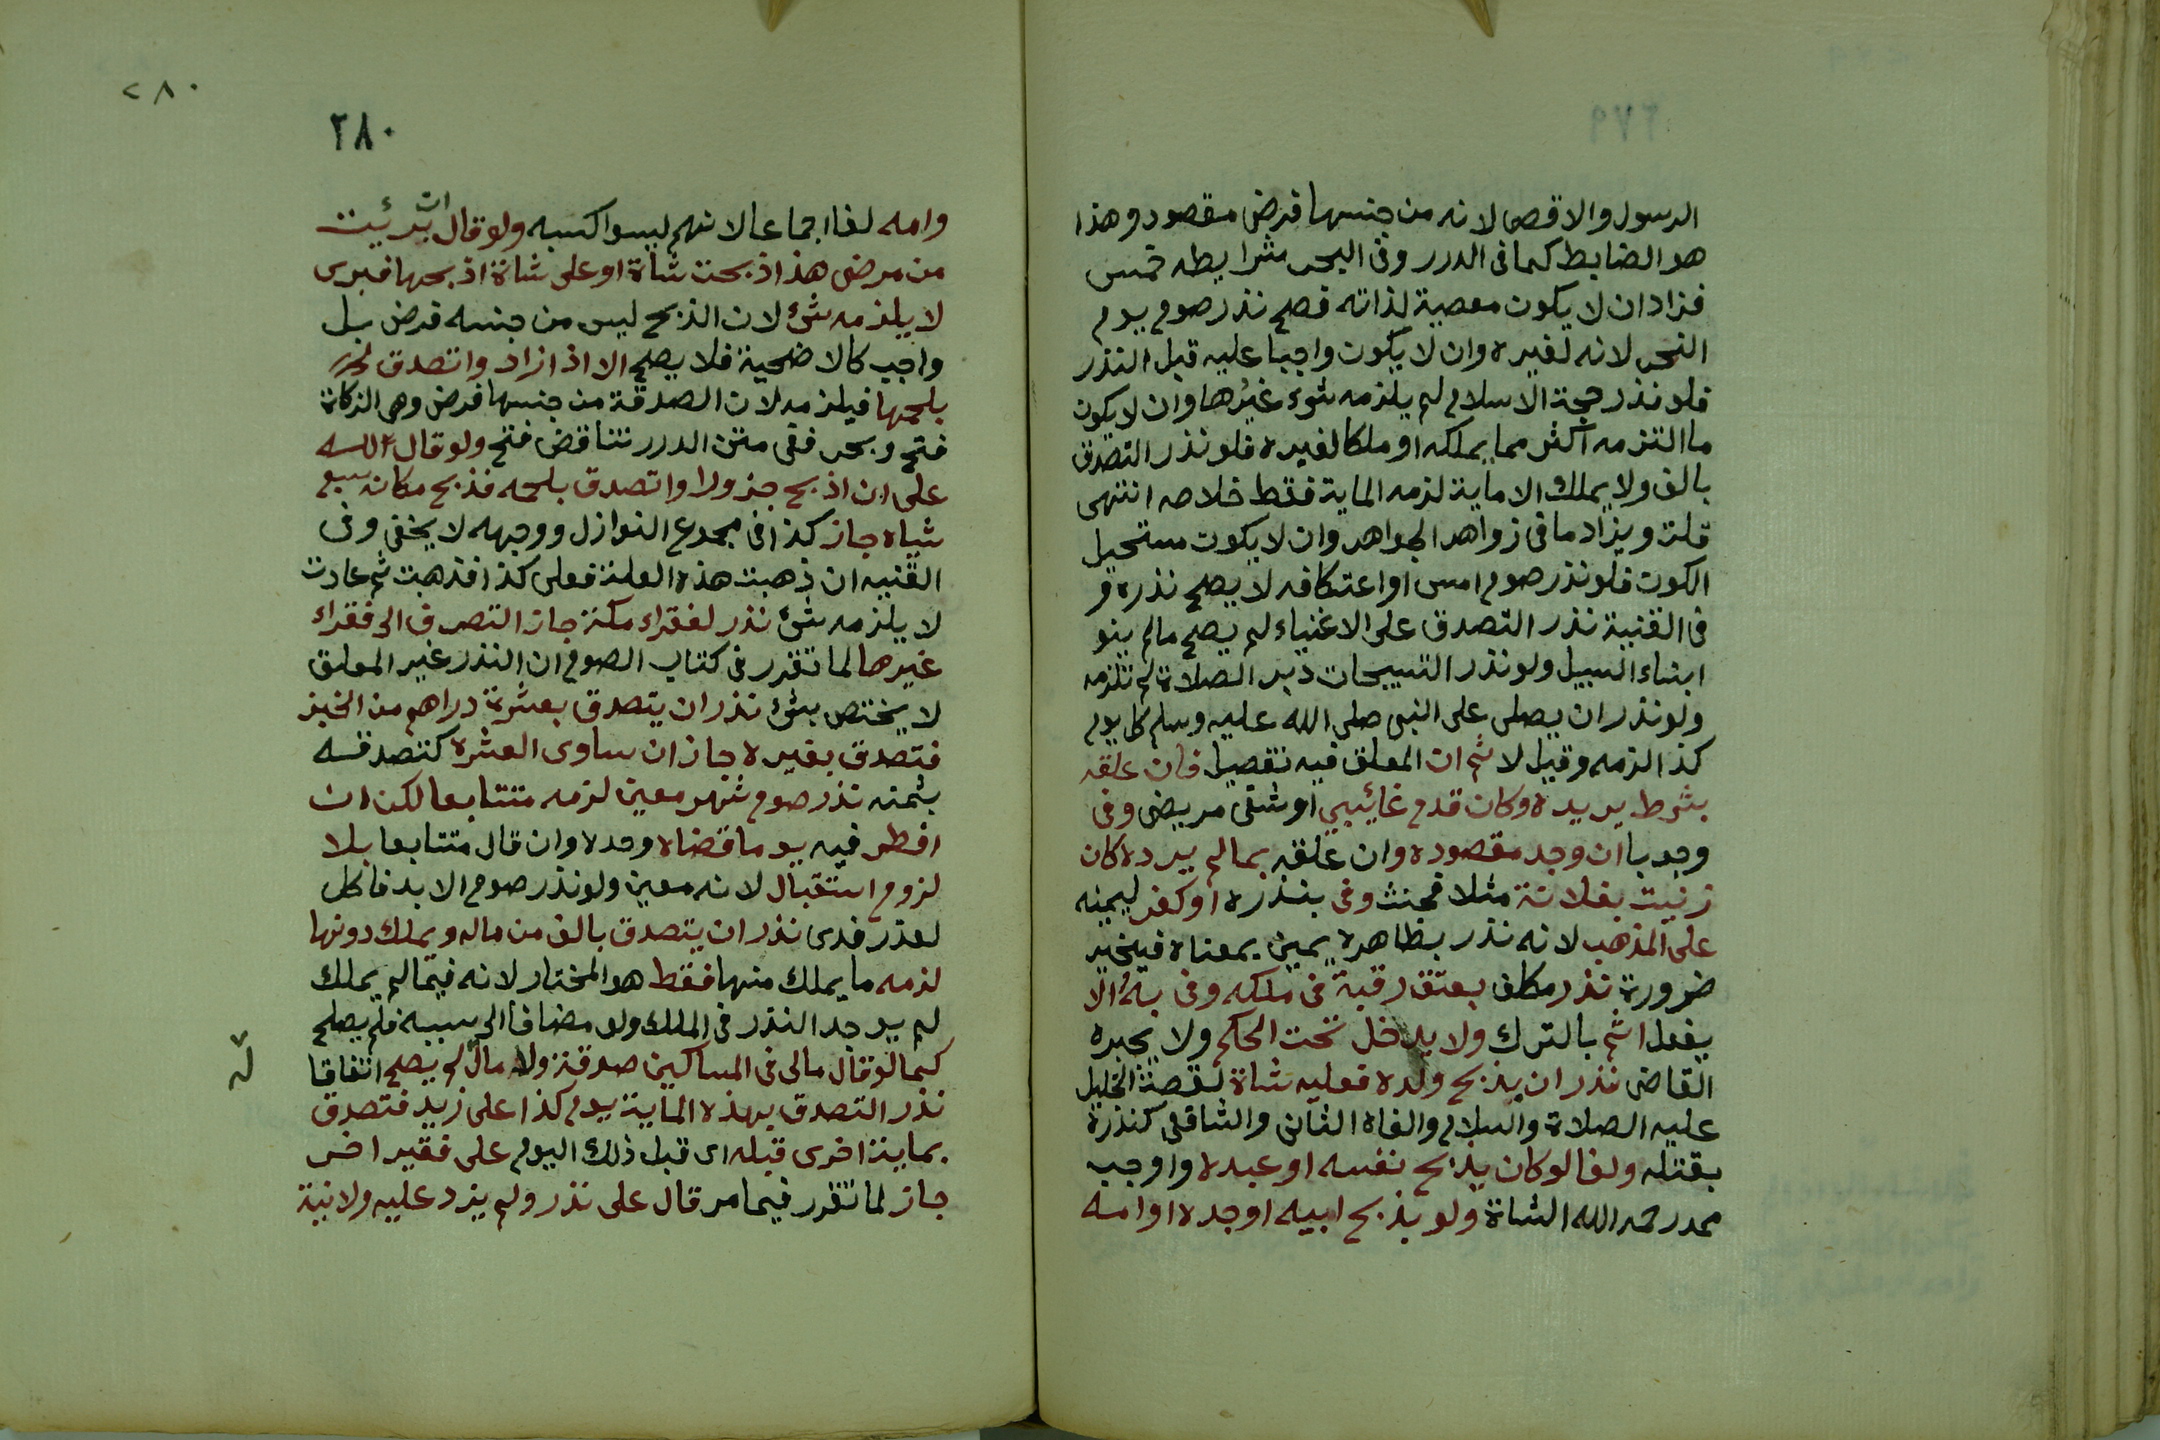 الرسول والاقصى لانه من جنسها فرض مقصود وهذا
هو الضابط كما في الدرر وفي البحر شرايطه خمس
فزاد ان لا يكون معصية لذاته فصح نذر صوم يوم
النحر لانه لغيره وان لا يكون واجبا عليه قبل النذر
فلو نذر حجة الاسلام لم يلزمه شيء غيرها وان لا يكون
ما التزمه اكثر مما يملكه او ملكا لغيره فلو نذر التصدق
بالف ولا يملك الا ماية لزمه الماية فقط خلاصه انتهى
قلت ويزاد ما في زواهر الجواهر وان لا يكون مستحيل
الكون فلو نذر صوم امس او اعتكافه لا يصح نذره و
في القنية نذر التصدق على الاغنياء لم يصح مالم ينو
ابناء السبيل ولو نذر التسبيحات دبر الصلاة لم تلزمه
ولو نذر ان يصلي على النبي صلى الله عليه وسلم كل يوم
كذا لزمه وقيل لا ثم ان المعلق فيه تفصيل فان علقه
بشرط يريده وكان قدم غائبي او شفى مريضي وفى
وجوبا ان وجد مقصوده وان علقه بمالم يرده كان
زنيت بفلانة مثلا فحنث وفى بنذره او كفر ليمينه
على المذهب لانه نذر بظاهره يمين بمعناه فيخير
ضرورة نذر مكلف بعتق رقبة في ملكه وفى به والا
يفعل اثم بالترك ولا يدخل تحت الحكم ولا يجبره
القاضي نذر ان يذبح ولده فعليه شاة لقصة الخليل
عليه الصلاة والسلام والغاه الثاني والشافعي كنذره
بقتله ولغا لو كان يذبح نفسه او عبده واوجب
محمد رحمه الله الشاة ولو بذبح ابيه او جده او امه
٢٨٠
٢٨٠
وامه لغا اجماعا لانهم ليسوا كسبه ولو قال ان برئت
من مرضي هذا ذبحت شاة او على شاة اذبحها فبرى
لا يلزمه شئ لان الذبح ليس من جنسه فرض بل
واجب كالاضحية فلا يصح الا اذا زاد واتصدق
بلحمها فيلزمه لان الصدقة من جنسها فرض وهي الزكاة
فتح وبحر ففي متن الدرر تناقض فتح ولو قال لله
على ان اذبح جزورا واتصدق بلحمه فذبح مكانه سبع
شياه جاز كذا في مجموع النوازل ووجهه لا يخفى وفى
القنيه ان ذهبت هذه العلة فعلى كذا فذهبت ثم عادت
لا يلزمه شئ نذر لفقراء مكة جاز التصرف الى فقراء
غيرها لما تقرر في كتاب الصوم ان النذر غير المعلق
لا يختص بشئ نذر ان يتصدق بعشرة دراهم من الخبز
فتصدق بغيره جاز ان ساوى العشرة كتصدقه
بثمنه نذر صوم شهر معين لزمه متتابعا لكن ان
افطر فيه يوما قضاه وحده وان قال متتابعا بلا
لزوم استقبال لانه معين ولو نذر صوم الابد فاكل
لعذر فدى نذر ان يتصدق بالف من ماله ويملك دونها
لزمه ما يملك منها فقط هو المختار لانه فيما لم يملك
لم يوجد النذر في الملك ولو مضافا الى سببه فلم يصح
كما لو قال مالي في المساكين صدقة ولا مال لم يصح اتفاقا
له
نذر التصدق بهذه الماية يوم كذا على زيد فتصدق
بماية اخرى قبله اى قبل ذلك اليوم على فقير اخر
جاز لما تقرر فيما مر قال على نذر ولم يزد عليه ولا نية